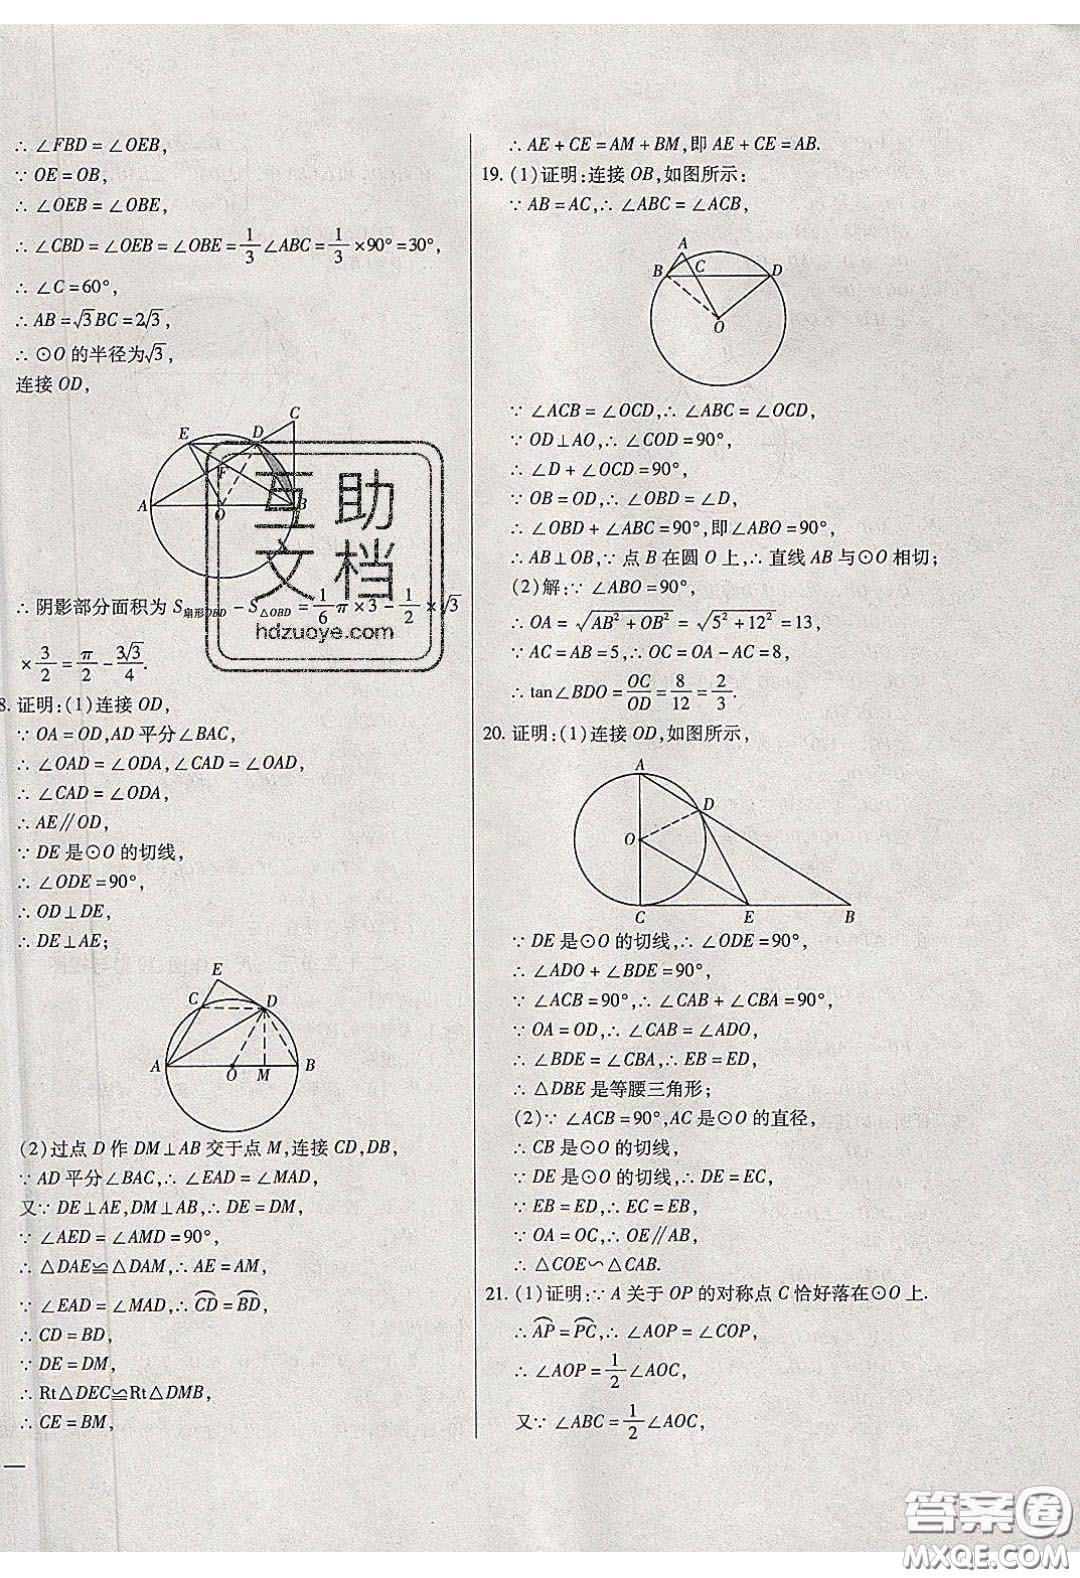 ∴ ∠FBD = ∠OEB,
∵ OE = OB,
∴ ∠OEB = ∠OBE,
∴ ∠CBD = ∠OEB = ∠OBE = 1/3 ∠ABC = 1/3 × 90° = 30°,
∴ ∠C = 60°,
∴ AB = √3 BC = 2√3,
∴ ⊙O 的半径为√3,
连接 OD,
C
E
D
F
A
O
B
互助
文档
hdzuoye.com
∴ 阴影部分面积为 S扇形OBD − S△OBD = 1/6 π × 3 − 1/2 × √3
× 3/2 = π/2 − 3√3/4.
8. 证明:(1)连接 OD,
∵ OA = OD,AD 平分∠BAC,
∴ ∠OAD = ∠ODA,∠CAD = ∠OAD,
∴ ∠CAD = ∠ODA,
∴ AE∥OD,
∵ DE 是⊙O 的切线,
∴ ∠ODE = 90°,
∴ OD⊥DE,
∴ DE⊥AE;
E
C
D
A
O
M
B
(2)过点 D 作 DM⊥AB 交于点 M,连接 CD,DB,
∵ AD 平分∠BAC,∴ ∠EAD = ∠MAD,
又∵ DE⊥AE,DM⊥AB,∴ DE = DM,
∵ ∠AED = ∠AMD = 90°,
∴ △DAE≌△DAM,∴ AE = AM,
∵ ∠EAD = ∠MAD,∴ ⌒CD = ⌒BD,
∴ CD = BD,
∵ DE = DM,
∴ Rt△DEC≌Rt△DMB,
∴ CE = BM,
∴ AE + CE = AM + BM,即 AE + CE = AB.
19. (1)证明:连接 OB,如图所示:
∵ AB = AC,∴ ∠ABC = ∠ACB,
A
B
C
D
O
∵ ∠ACB = ∠OCD,∴ ∠ABC = ∠OCD,
∵ OD⊥AO,∴ ∠COD = 90°,
∴ ∠D + ∠OCD = 90°,
∵ OB = OD,∴ ∠OBD = ∠D,
∴ ∠OBD + ∠ABC = 90°,即∠ABO = 90°,
∴ AB⊥OB,∵ 点 B 在圆 O 上,∴ 直线 AB 与⊙O 相切;
(2)解:∵ ∠ABO = 90°,
∴ OA = √(AB² + OB²) = √(5² + 12²) = 13,
∵ AC = AB = 5,∴ OC = OA − AC = 8,
∴ tan∠BDO = OC/OD = 8/12 = 2/3.
20. 证明:(1)连接 OD,如图所示,
A
D
O
C
E
B
∵ DE 是⊙O 的切线,∴ ∠ODE = 90°,
∴ ∠ADO + ∠BDE = 90°,
∵ ∠ACB = 90°,∴ ∠CAB + ∠CBA = 90°,
∵ OA = OD,∴ ∠CAB = ∠ADO,
∴ ∠BDE = ∠CBA,∴ EB = ED,
∴ △DBE 是等腰三角形;
(2)∵ ∠ACB = 90°,AC 是⊙O 的直径,
∴ CB 是⊙O 的切线,
∵ DE 是⊙O 的切线,∴ DE = EC,
∵ EB = ED,∴ EC = EB,
∵ OA = OC,∴ OE∥AB,
∴ △COE∽△CAB.
21. (1)证明:∵ A 关于 OP 的对称点 C 恰好落在⊙O 上.
∴ ⌒AP = ⌒PC,∴ ∠AOP = ∠COP,
∴ ∠AOP = 1/2 ∠AOC,
又∵ ∠ABC = 1/2 ∠AOC,
答案圈
MXQE.COM